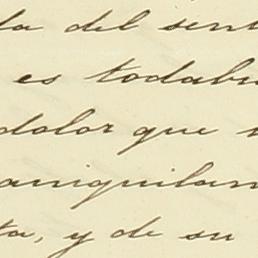 da del sent
es todabi
dolor que
anquilam
ta, y de su